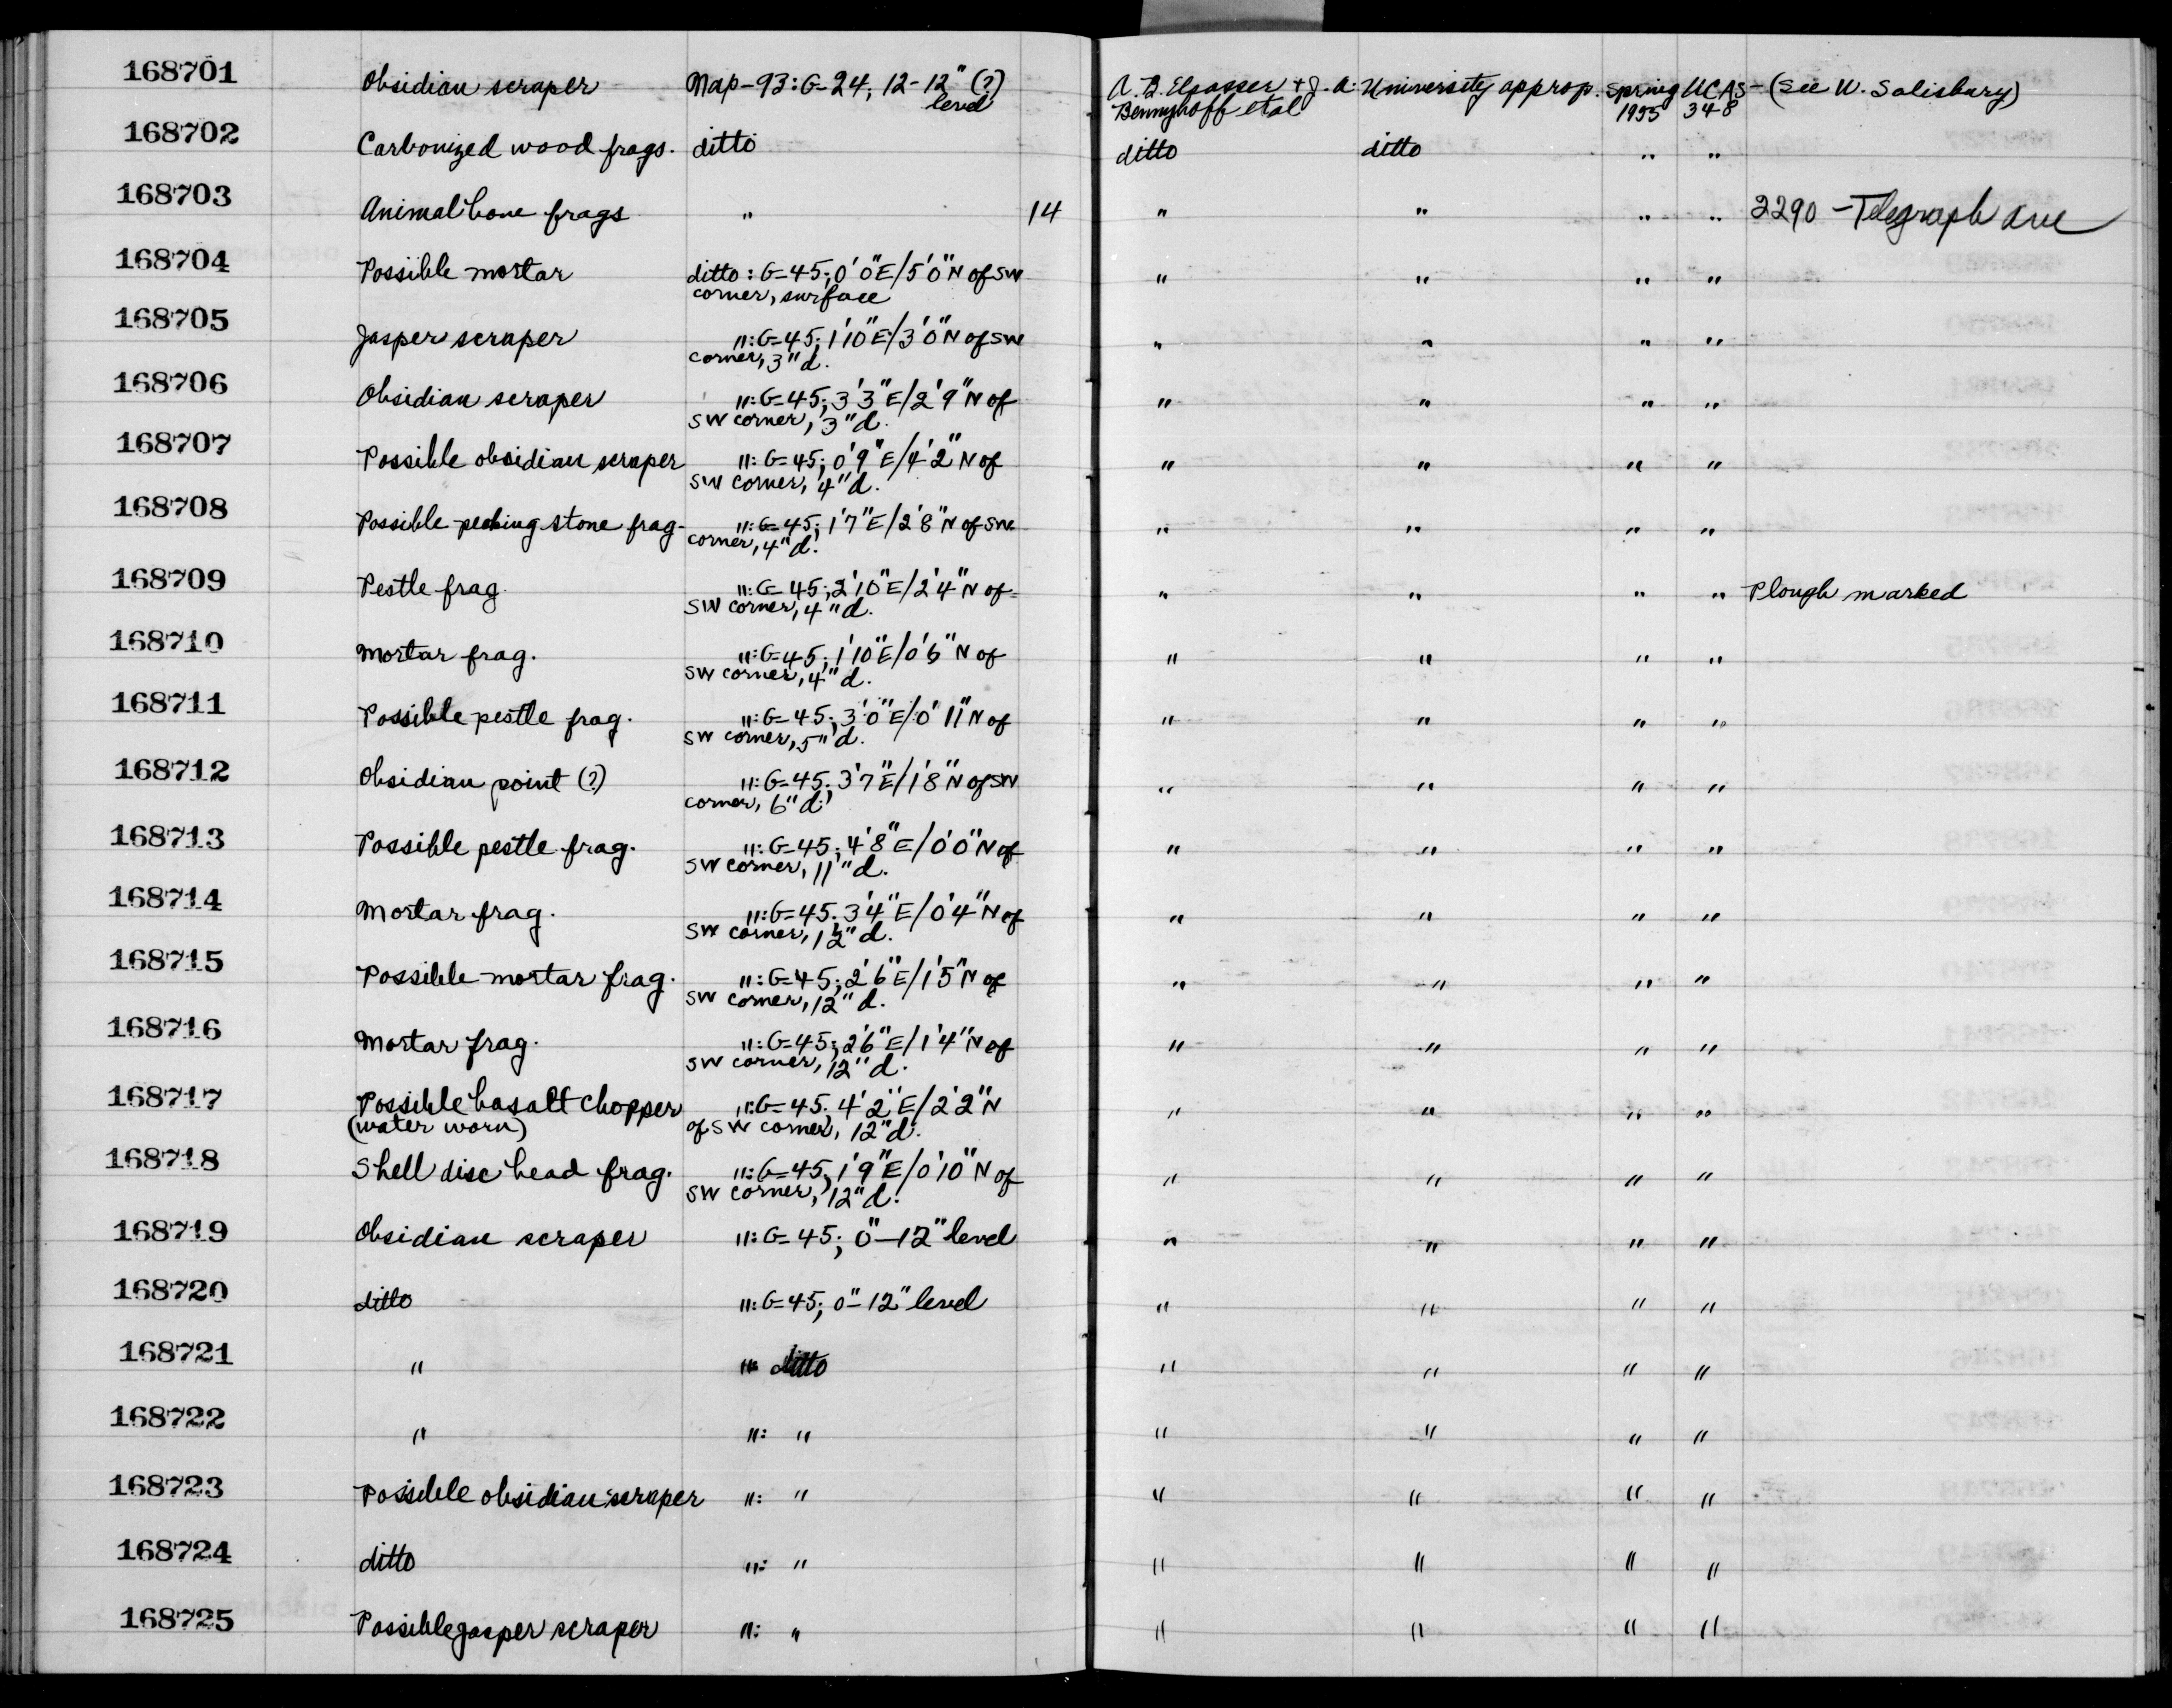 168701 Obsidian scraper Nap-93: G-24, 12-12" (?) A. B. Elsasser + J. A. University approp. Spring UCAS- (See W. Salisbury)
level Bennyhoff et al 1955 348
168702 Carbonized wood frags. ditto ditto ditto " "
168703 Animal bone frags " 14 " " " " 2290 - Telegraph Ave
168704 Possible mortar ditto: G-45; 0'0"E/5'0"N of SW " " " "
corner, surface
168705 Jasper scraper ": G-45; 1'10"E/3'0"N of SW " " " "
corner, 3"d.
168706 Obsidian scraper ": G-45; 3'3"E/2'9"N of " " " "
SW corner, 3"d.
168707 Possible obsidian scraper ": G-45; 0'9"E/4'2"N of " " " "
SW corner, 4"d.
168708 Possible pecking stone frag. ": G-45; 1'7"E/2'8"N of SW " " " "
corner, 4"d.
168709 Pestle frag. ": G-45; 2'10"E/2'4"N of " " " " Plough marked
SW corner, 4"d.
168710 Mortar frag. ": G-45; 1'10"E/0'6"N of " " " "
SW corner, 4"d.
168711 Possible pestle frag. ": G-45; 3'0"E/0'11"N of " " " "
SW corner, 5"d.
168712 Obsidian point (?) ": G-45; 3'7"E/1'8"N of SW " " " "
corner, 6"d.
168713 Possible pestle frag. ": G-45; 4'8"E/0'0"N of " " " "
SW corner, 11"d.
168714 Mortar frag. ": G-45; 3'4"E/0'4"N of " " " "
SW corner, 12"d.
168715 Possible mortar frag. ": G-45; 2'6"E/1'5"N of " " " "
SW corner, 12"d.
168716 Mortar frag. ": G-45; 2'6"E/1'4"N of " " " "
SW corner, 12"d.
168717 Possible basalt chopper ": G-45; 4'2"E/2'2"N " " " "
(water worn) of SW corner, 12"d.
168718 Shell disc bead frag. ": G-45; 1'9"E/0'10"N of " " " "
SW corner, 12"d.
168719 Obsidian scraper ": G-45; 0"-12" level " " " "
168720 ditto ": G-45; 0"-12" level " " " "
168721 " ": ditto " " " "
168722 " ": " " " " "
168723 Possible obsidian scraper ": " " " " "
168724 ditto ": " " " " "
168725 Possible jasper scraper ": " " " " "